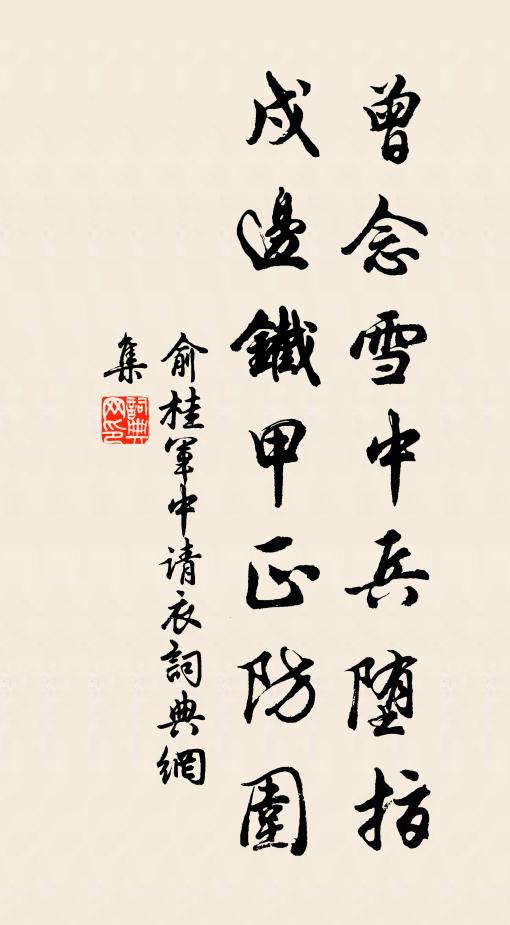 曾念雪中兵堕指
戍邊鐵甲正防圍
俞桂軍中請衣詞典網
集
詞典網印